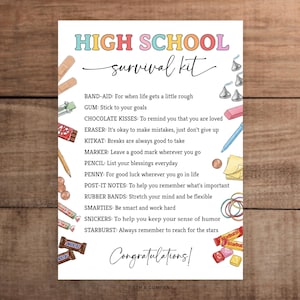 HIGH SCHOOL
survival kit
BAND-AID: For when life gets a little rough
GUM: Stick to your goals
CHOCOLATE KISSES: To remind you that you are loved
ERASER: It's okay to make mistakes, just don't give up
KITKAT: Breaks are always good to take
MARKER: Leave a good mark wherever you go
PENCIL: List your blessings everyday
PENNY: For good luck wherever you go in life
POST-IT NOTES: To help you remember what's important
RUBBER BANDS: Stretch your mind and be flexible
SMARTIES: Be smart and work hard
SNICKERS: To help you keep your sense of humor
STARBURST: Always remember to reach for the stars
Congratulations!